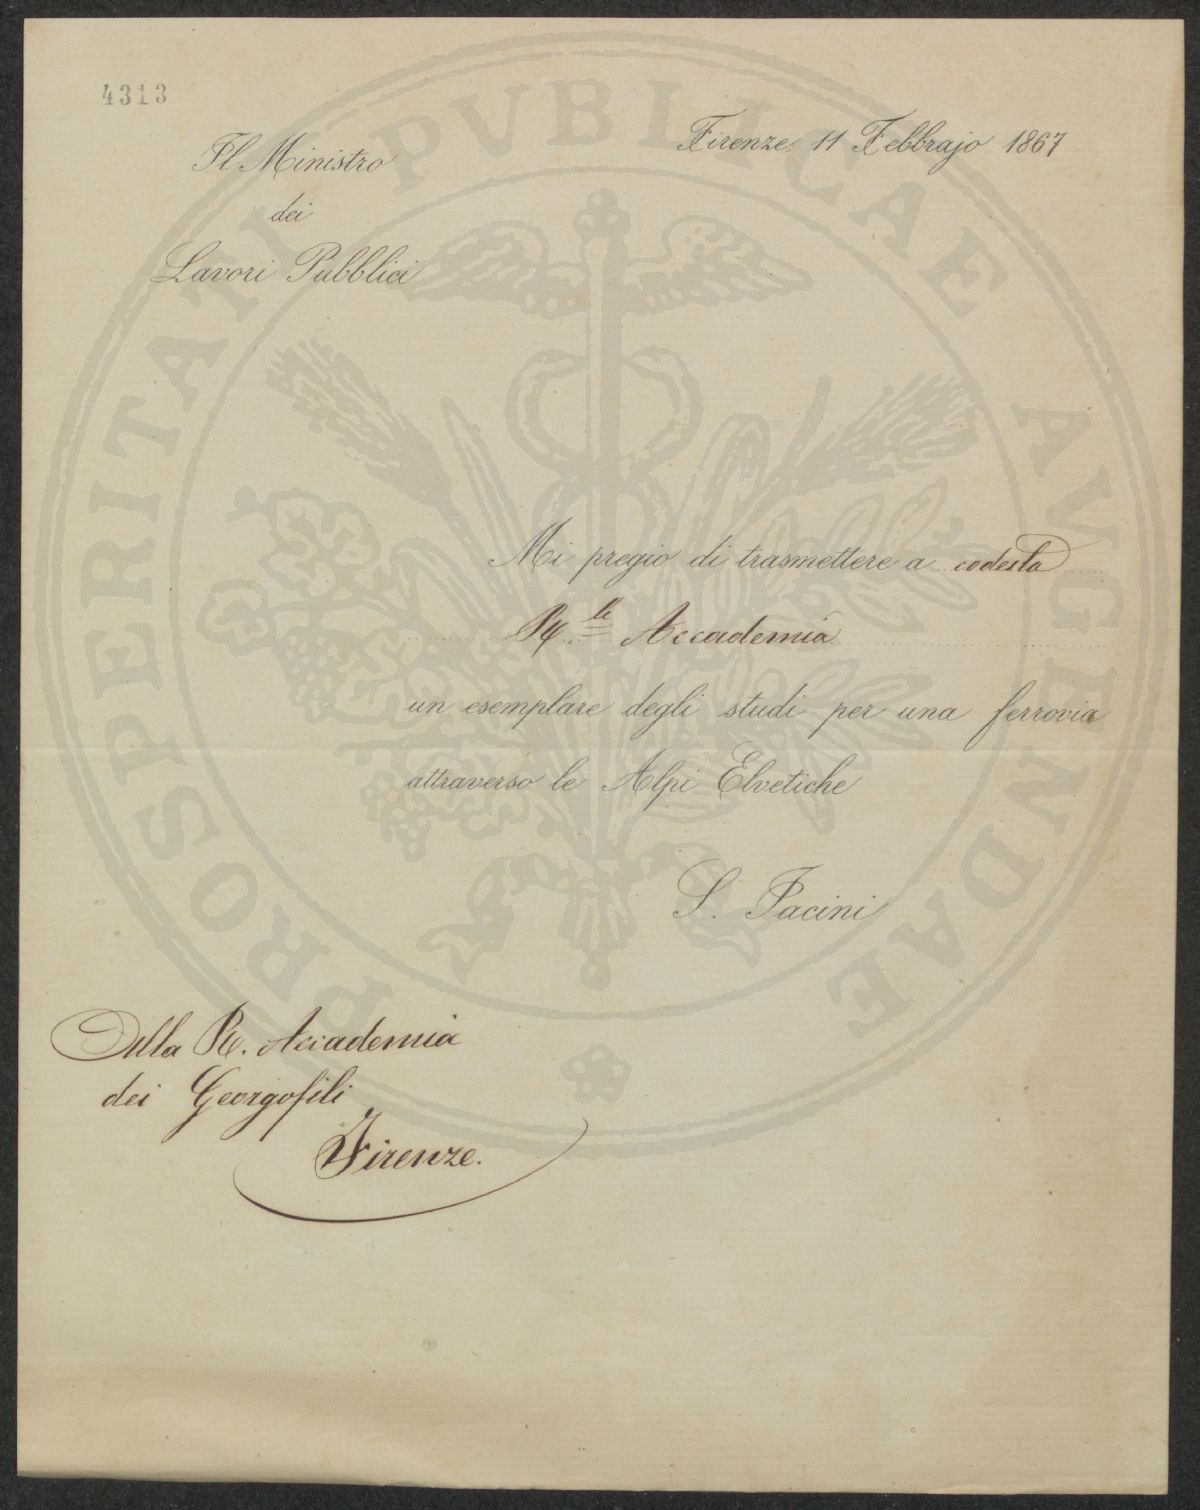 4313
Firenze 11 Febbrajo 1867
Il Ministro
dei
Lavori Pubblici
Mi pregio di trasmettere a codesta
R.le Accademia
un esemplare degli studi per una ferrovia
attraverso le Alpi Elvetiche
S. Jacini
Alla R. Accademia
dei Georgofili
Firenze.
PROSPERITATI PVBLICAE AVGENDAE